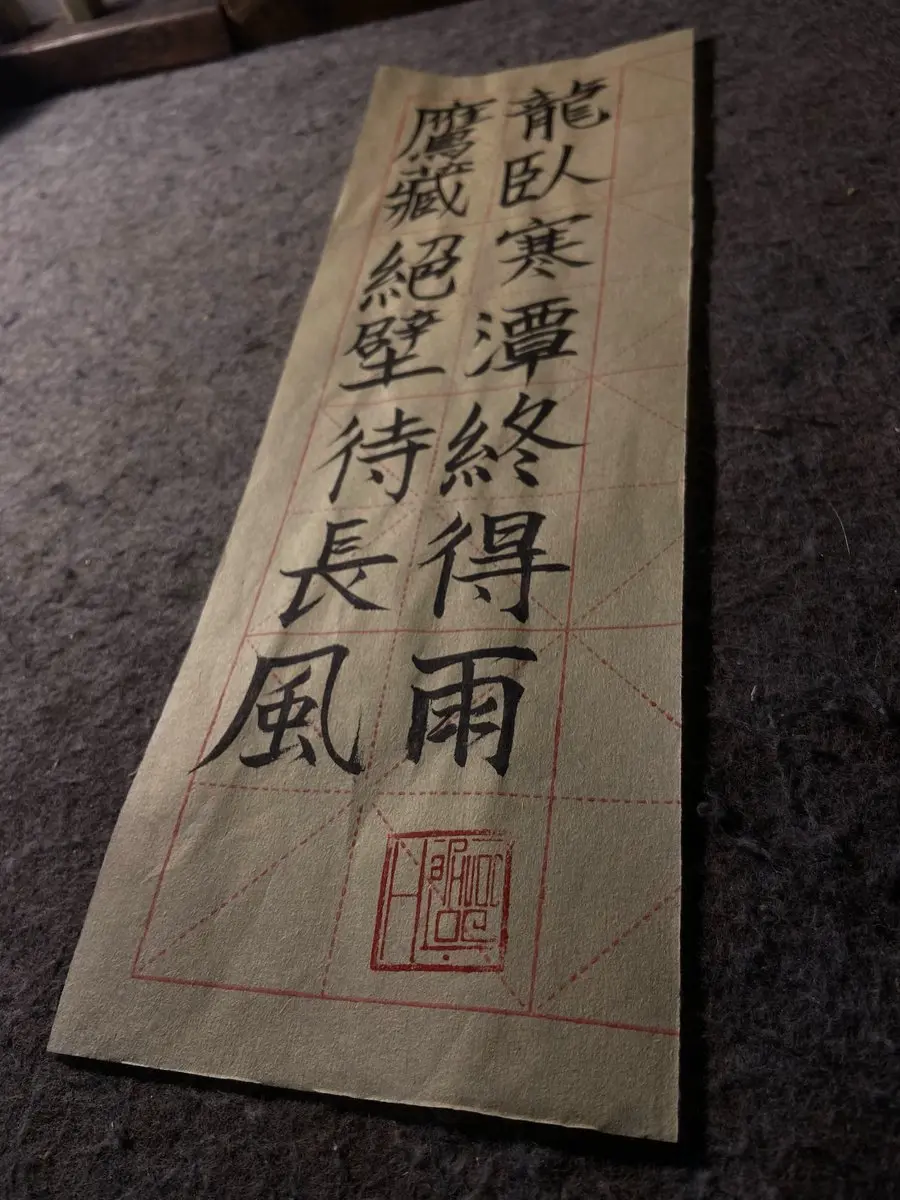 龍臥寒潭終得雨
鷹藏絕壁待長風